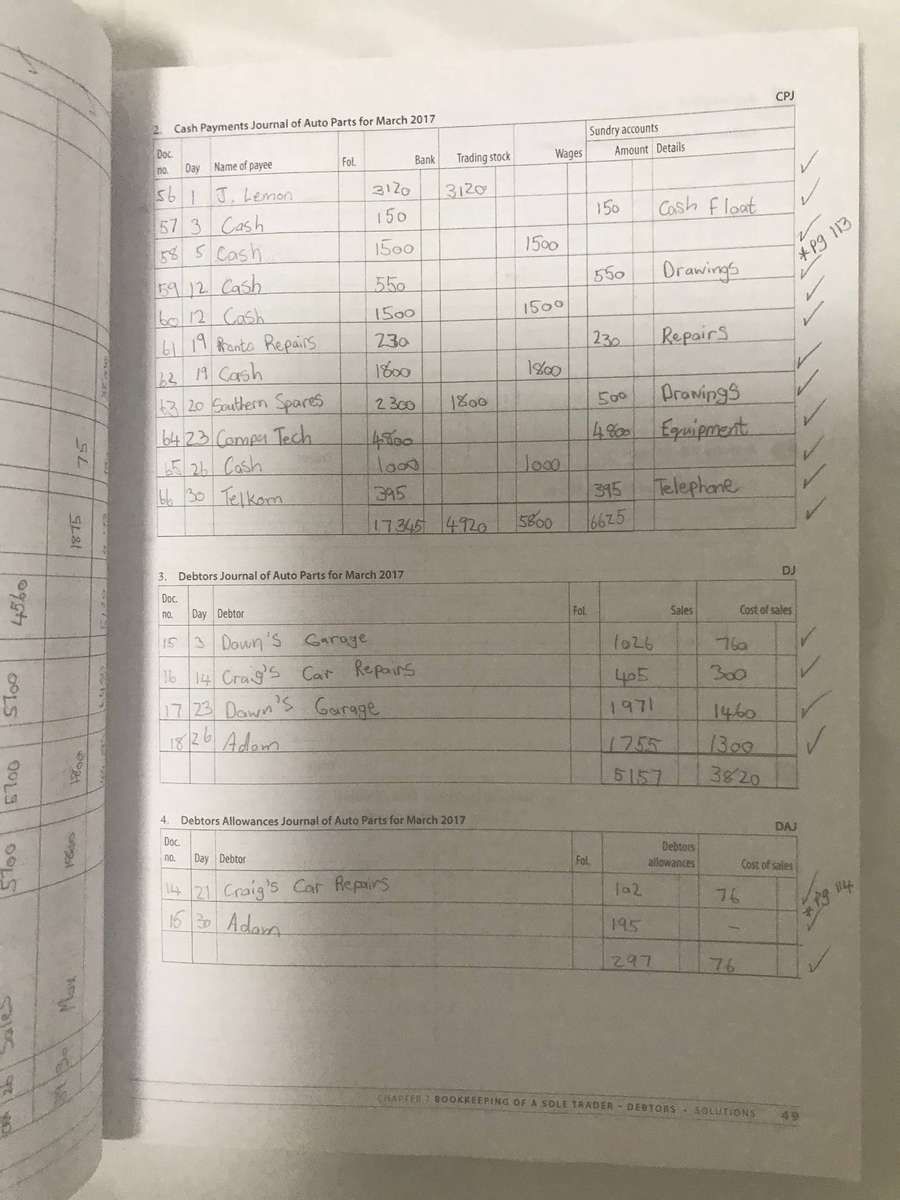 CPJ
2. Cash Payments Journal of Auto Parts for March 2017
Sundry accounts
Doc. no. Day Name of payee Fol. Bank Trading stock Wages Amount Details
56 1 J. Lemon 3120 3120
57 3 Cash 150 150 Cash float
58 5 Cash 1500 1500
*Pg 113
59 12 Cash 550 550 Drawings
60 12 Cash 1500 1500
61 19 Pronto Repairs 230 230 Repairs
62 19 Cash 1800 1800
63 20 Southern Spares 2300 1800 500 Drawings
64 23 Compu Tech 4800 4800 Equipment
65 26 Cash 1000 1000
66 30 Telkom 395 395 Telephone
17345 4920 5800 6625
3. Debtors Journal of Auto Parts for March 2017 DJ
Doc. no. Day Debtor Fol. Sales Cost of sales
15 3 Dawn's Garage 1026 760
16 14 Craig's Car Repairs 405 300
17 23 Dawn's Garage 1971 1460
18 26 Adam 1755 1300
5157 3820
4. Debtors Allowances Journal of Auto Parts for March 2017 DAJ
Doc. no. Day Debtor Fol. Debtors allowances Cost of sales
14 21 Craig's Car Repairs 102 76
*Pg 114
15 30 Adam 195 –
297 76
CHAPTER 7 BOOKKEEPING OF A SOLE TRADER - DEBTORS - SOLUTIONS 49
75
1875
4560
5700
5700
1800
5700
1800
Sales
26